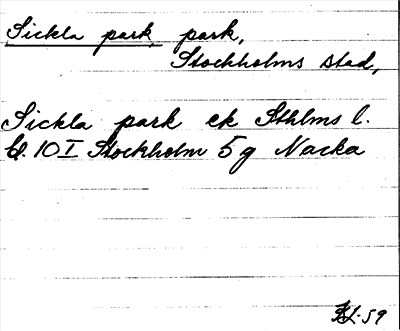 Sickla park, park,
Stockholms stad,
Sickla park ek Sthlms l.
bl. 10 I Stockholm 5g Nacka